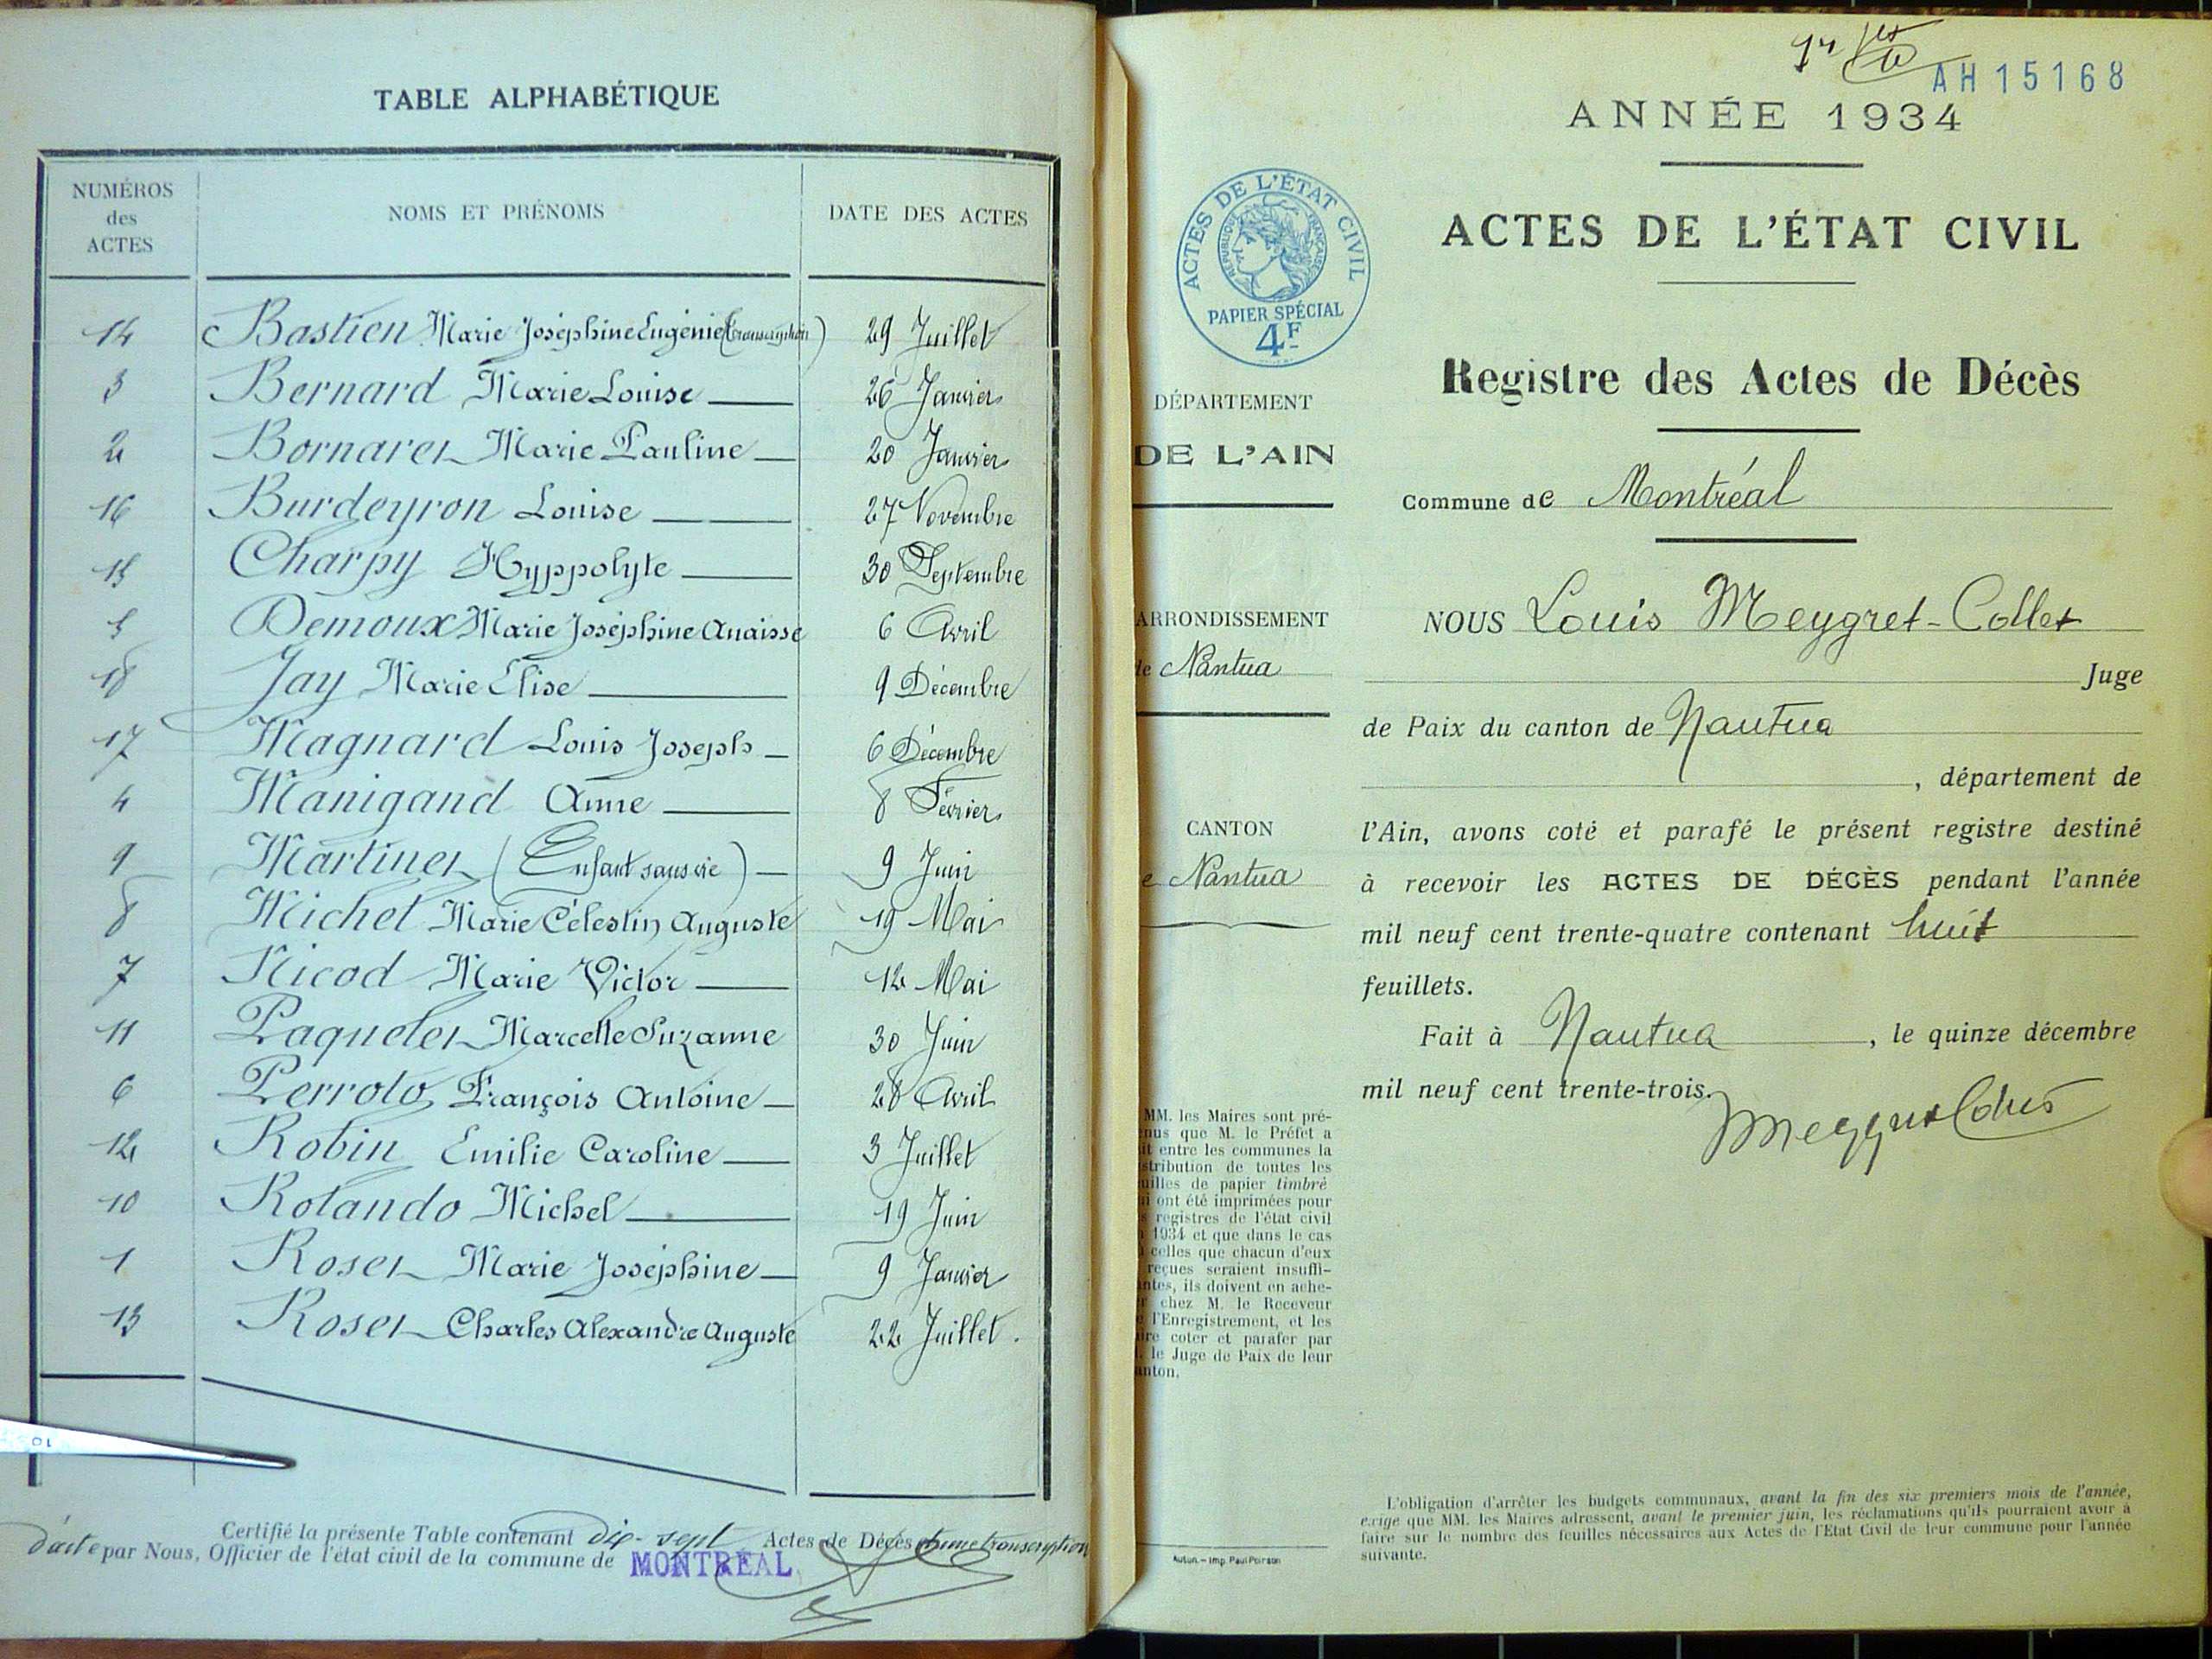 TABLE ALPHABÉTIQUE
NUMÉROS
des
ACTES
NOMS ET PRÉNOMS
DATE DES ACTES
14 Bastien Marie Joséphine Eugénie (transcription) 29 Juillet
3 Bernard Marie Louise 26 Janvier
2 Bornarel Marie Pauline 20 Janvier
16 Burdeyron Louise 27 Novembre
15 Charpy Hyppolyte 30 Septembre
5 Demoux Marie Joséphine Anaisse 6 Avril
18 Jay Marie Elise 9 Décembre
17 Magnard Louis Joseph 6 Décembre
4 Manigand Anne 8 Février
9 Martinet (Enfant sans vie) 9 Juin
8 Michel Marie Célestin Auguste 19 Mai
7 Nicod Marie Victor 12 Mai
11 Paquelet Marcelle Suzanne 30 Juin
6 Perroto François Antoine 28 Avril
12 Robin Emilie Caroline 3 Juillet
10 Rolando Michel 19 Juin
1 Roset Marie Joséphine 9 Janvier
13 Roset Charles Alexandre Auguste 22 Juillet.
Certifié la présente Table contenant dix-sept Actes de Décès et une transcription
d'acte par Nous, Officier de l'état civil de la commune de MONTRÉAL
AH 15168
ANNÉE 1934
ACTES DE L'ÉTAT CIVIL
RÉPUBLIQUE FRANÇAISE
PAPIER SPÉCIAL
4F
ACTES DE L'ÉTAT CIVIL
Registre des Actes de Décès
DÉPARTEMENT
DE L'AIN
Commune de Montréal
ARRONDISSEMENT
de Nantua
CANTON
e Nantua
NOUS Louis Meygret-Collet
Juge
de Paix du canton de Nantua
, département de
l'Ain, avons coté et parafé le présent registre destiné
à recevoir les ACTES DE DÉCÈS pendant l'année
mil neuf cent trente-quatre contenant huit
feuillets.
Fait à Nantua, le quinze décembre
mil neuf cent trente-trois.
MM. les Maires sont pré-
nus que M. le Préfet a
it entre les communes la
stribution de toutes les
uilles de papier timbré
i ont été imprimées pour
s registres de l'état civil
1934 et que dans le cas
celles que chacun d'eux
reçues seraient insuffi-
ntes, ils doivent en ache-
r chez M. le Receveur
l'Enregistrement, et les
ire coter et parafer par
. le Juge de Paix de leur
anton.
Autun. – Imp. Paul Poirson
L'obligation d'arrêter les budgets communaux, avant la fin des six premiers mois de l'année,
exige que MM. les Maires adressent, avant le premier juin, les réclamations qu'ils pourraient avoir à
faire sur le nombre des feuilles nécessaires aux Actes de l'Etat Civil de leur commune pour l'année
suivante.